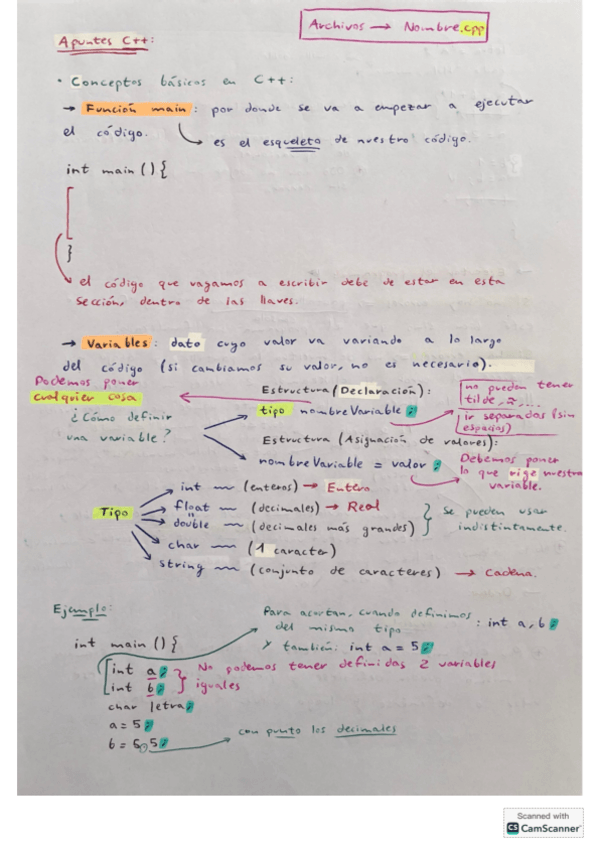 Archivos → Nombre.cpp
Apuntes C++:
• Conceptos básicos en C++:
→ Función main: por donde se va a empezar a ejecutar
el código.
es el esqueleto de nuestro código.
int main () {
}
el código que vayamos a escribir debe de estar en esta
sección, dentro de las llaves.
→ Variables: dato cuyo valor va variando a lo largo
del código (si cambiamos su valor, no es necesario).
Podemos poner
cualquier cosa
Estructura (Declaración):
tipo nombreVariable ;
no pueden tener
tilde, ñ, ...
ir separadas (sin
espacios)
¿Cómo definir
una variable?
Estructura (Asignación de valores):
nombreVariable = valor ;
Debemos poner
lo que rige nuestra
variable.
Tipo
int (enteros) → Entero
float (decimales) → Real
double (decimales más grandes)
Se pueden usar
indistintamente.
char (1 caracter)
string (conjunto de caracteres) → Cadena.
Ejemplo:
Para acortar, cuando definimos
del mismo tipo : int a, b ;
y también: int a = 5 ;
int main () {
int a ;
int b ;
No podemos tener definidas 2 variables
iguales
char letra ;
a = 5 ;
b = 5.5 ;
con punto los decimales
Scanned with
CS CamScanner